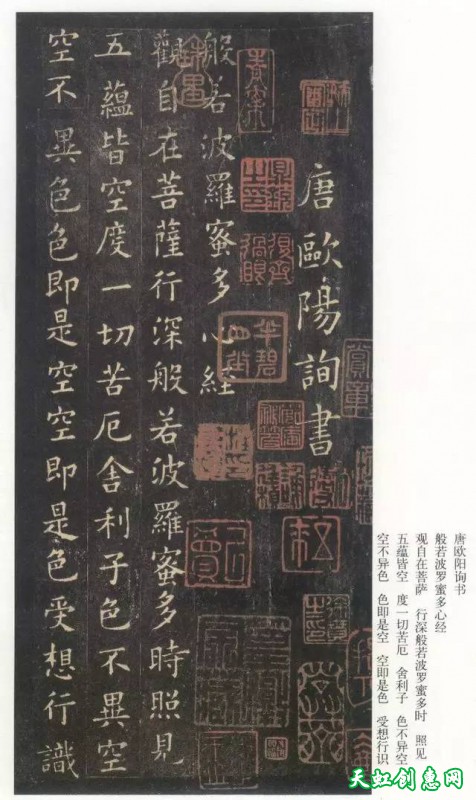 唐歐陽詢書
般若波羅蜜多心経
觀自在菩薩行深般若波羅蜜多時照見
五蘊皆空度一切苦厄舍利子色不異空
空不異色色即是空空即是色受想行識
唐欧阳询书
般若波罗蜜多心经
观自在菩萨 行深般若波罗蜜多时 照见
五蕴皆空 度一切苦厄 舍利子 色不异空
空不异色 色即是空 空即是色 受想行识
天虹创意网